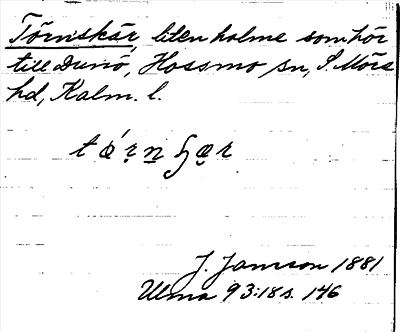 Törnskär, liten holme som hör
till Dunö, Hossmo sn, S. Möre
hd, Kalm. l.
J. Jamson 1881
Ulma 93:18 s. 146